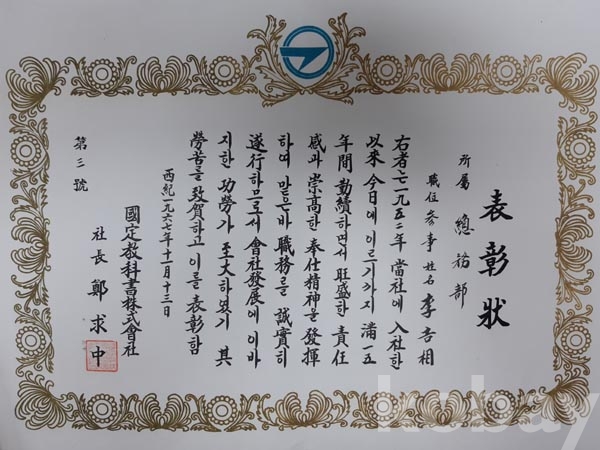 表彰狀
所屬 總務部
職位 參事 姓名 李吉相
右者는 一九五二年 當社에 入社한
以來 今日에 이르기까지 滿一五
年間 勤續하면서 旺盛한 責任
感과 崇高한 奉仕精神을 發揮
하여 맡은바 職務를 誠實히
遂行하므로서 會社發展에 이바
지한 功勞가 至大하였기 其
勞苦를 致賀하고 이를 表彰함
西紀一九六七年十一月十三日
國定敎科書株式會社
社長 鄭求中
第三號
kobay